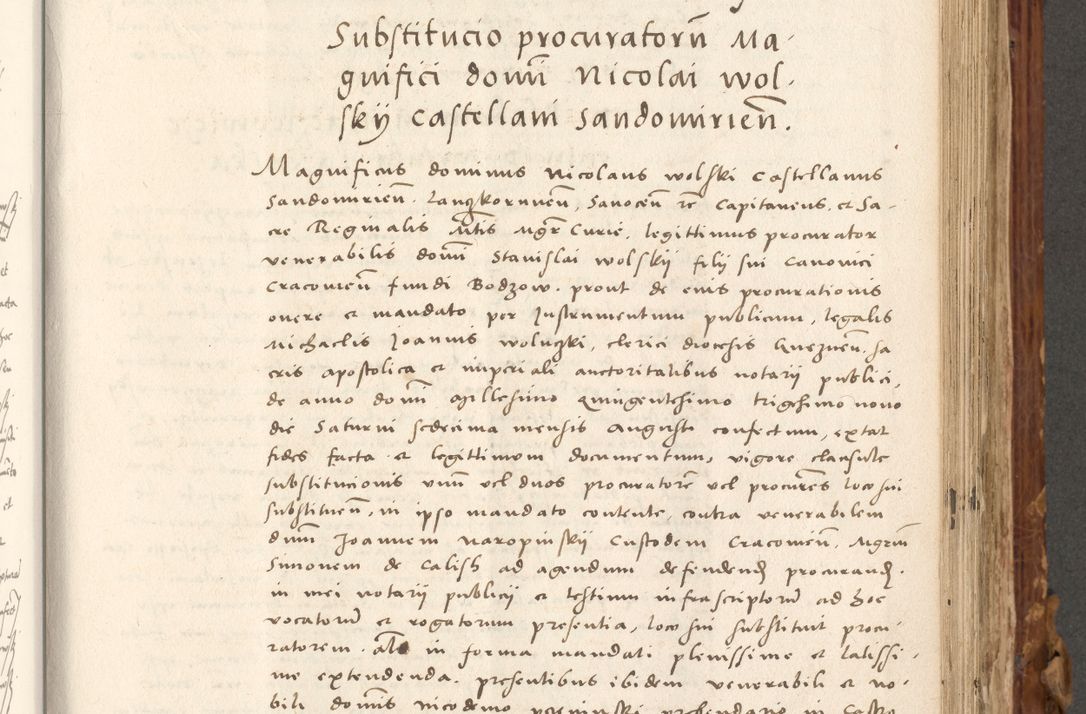 Substitucio procuratorn̄ Ma-
gnifici domī Nicolai wol-
skÿ Castellani Sandomirien̄.
Magnificus dominus Nicolaus wolski Castellanus
Sandomirien̄. Lanczkorunen̄, Sanocen̄ rc̄ Capitaneus, et Sa-
cre Reginalis Mt̄is Mgr̄ Curie, legittimus procurator
venerabilis domī Stanislai wolskÿ filÿ sui Canonici
Cracovien̄ fundi Bodzow. prout de eius procurationis
onere et mandato per Instrumentum publicum, legalis
Michaelis Joannis woluczki, clerici diocesis Gneznen̄. sa
cris apostolica et imperiali auctoritatibus notarÿ publici,
de anno domī Millesimo quingentesimo trigesimo nono
die Saturni sedecima mensis Augusti confectum, extat
fides facta et legittimum documentum, vigore clausule
substitucionis unū vel duos procuratorē vel procurēs loco sui
substituen̄, in ipso mandato contente, contra venerabilem
dnū Joannem Naropinskÿ Custodem Cracovien̄, Mgrm̄
Simonem de Calish ad agendum defendend procurand.
in mei notarÿ publicÿ et testium infrascriptorū ad hoc
vocatorū et rogatorum presentia, loco sui substituit procu-
ratorem. in forma mandati plenissime et latissi-
me extendenda. presentibus ibidem venerabili et no-
bili domīs Nicodemo prebendario in Castro